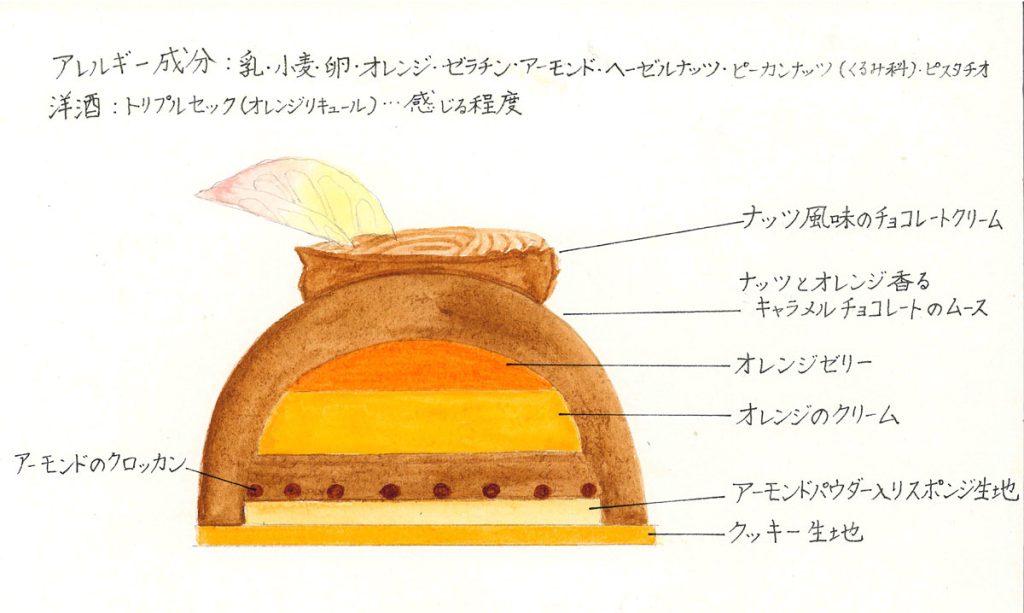 アレルギー成分：乳・小麦・卵・オレンジ・ゼラチン・アーモンド・ヘーゼルナッツ・ピーカンナッツ（くるみ科）・ピスタチオ
洋酒：トリプルセック（オレンジリキュール）…感じる程度
ナッツ風味のチョコレートクリーム
ナッツとオレンジ香る
キャラメルチョコレートのムース
オレンジゼリー
オレンジのクリーム
アーモンドのクロッカン
アーモンドパウダー入りスポンジ生地
クッキー生地